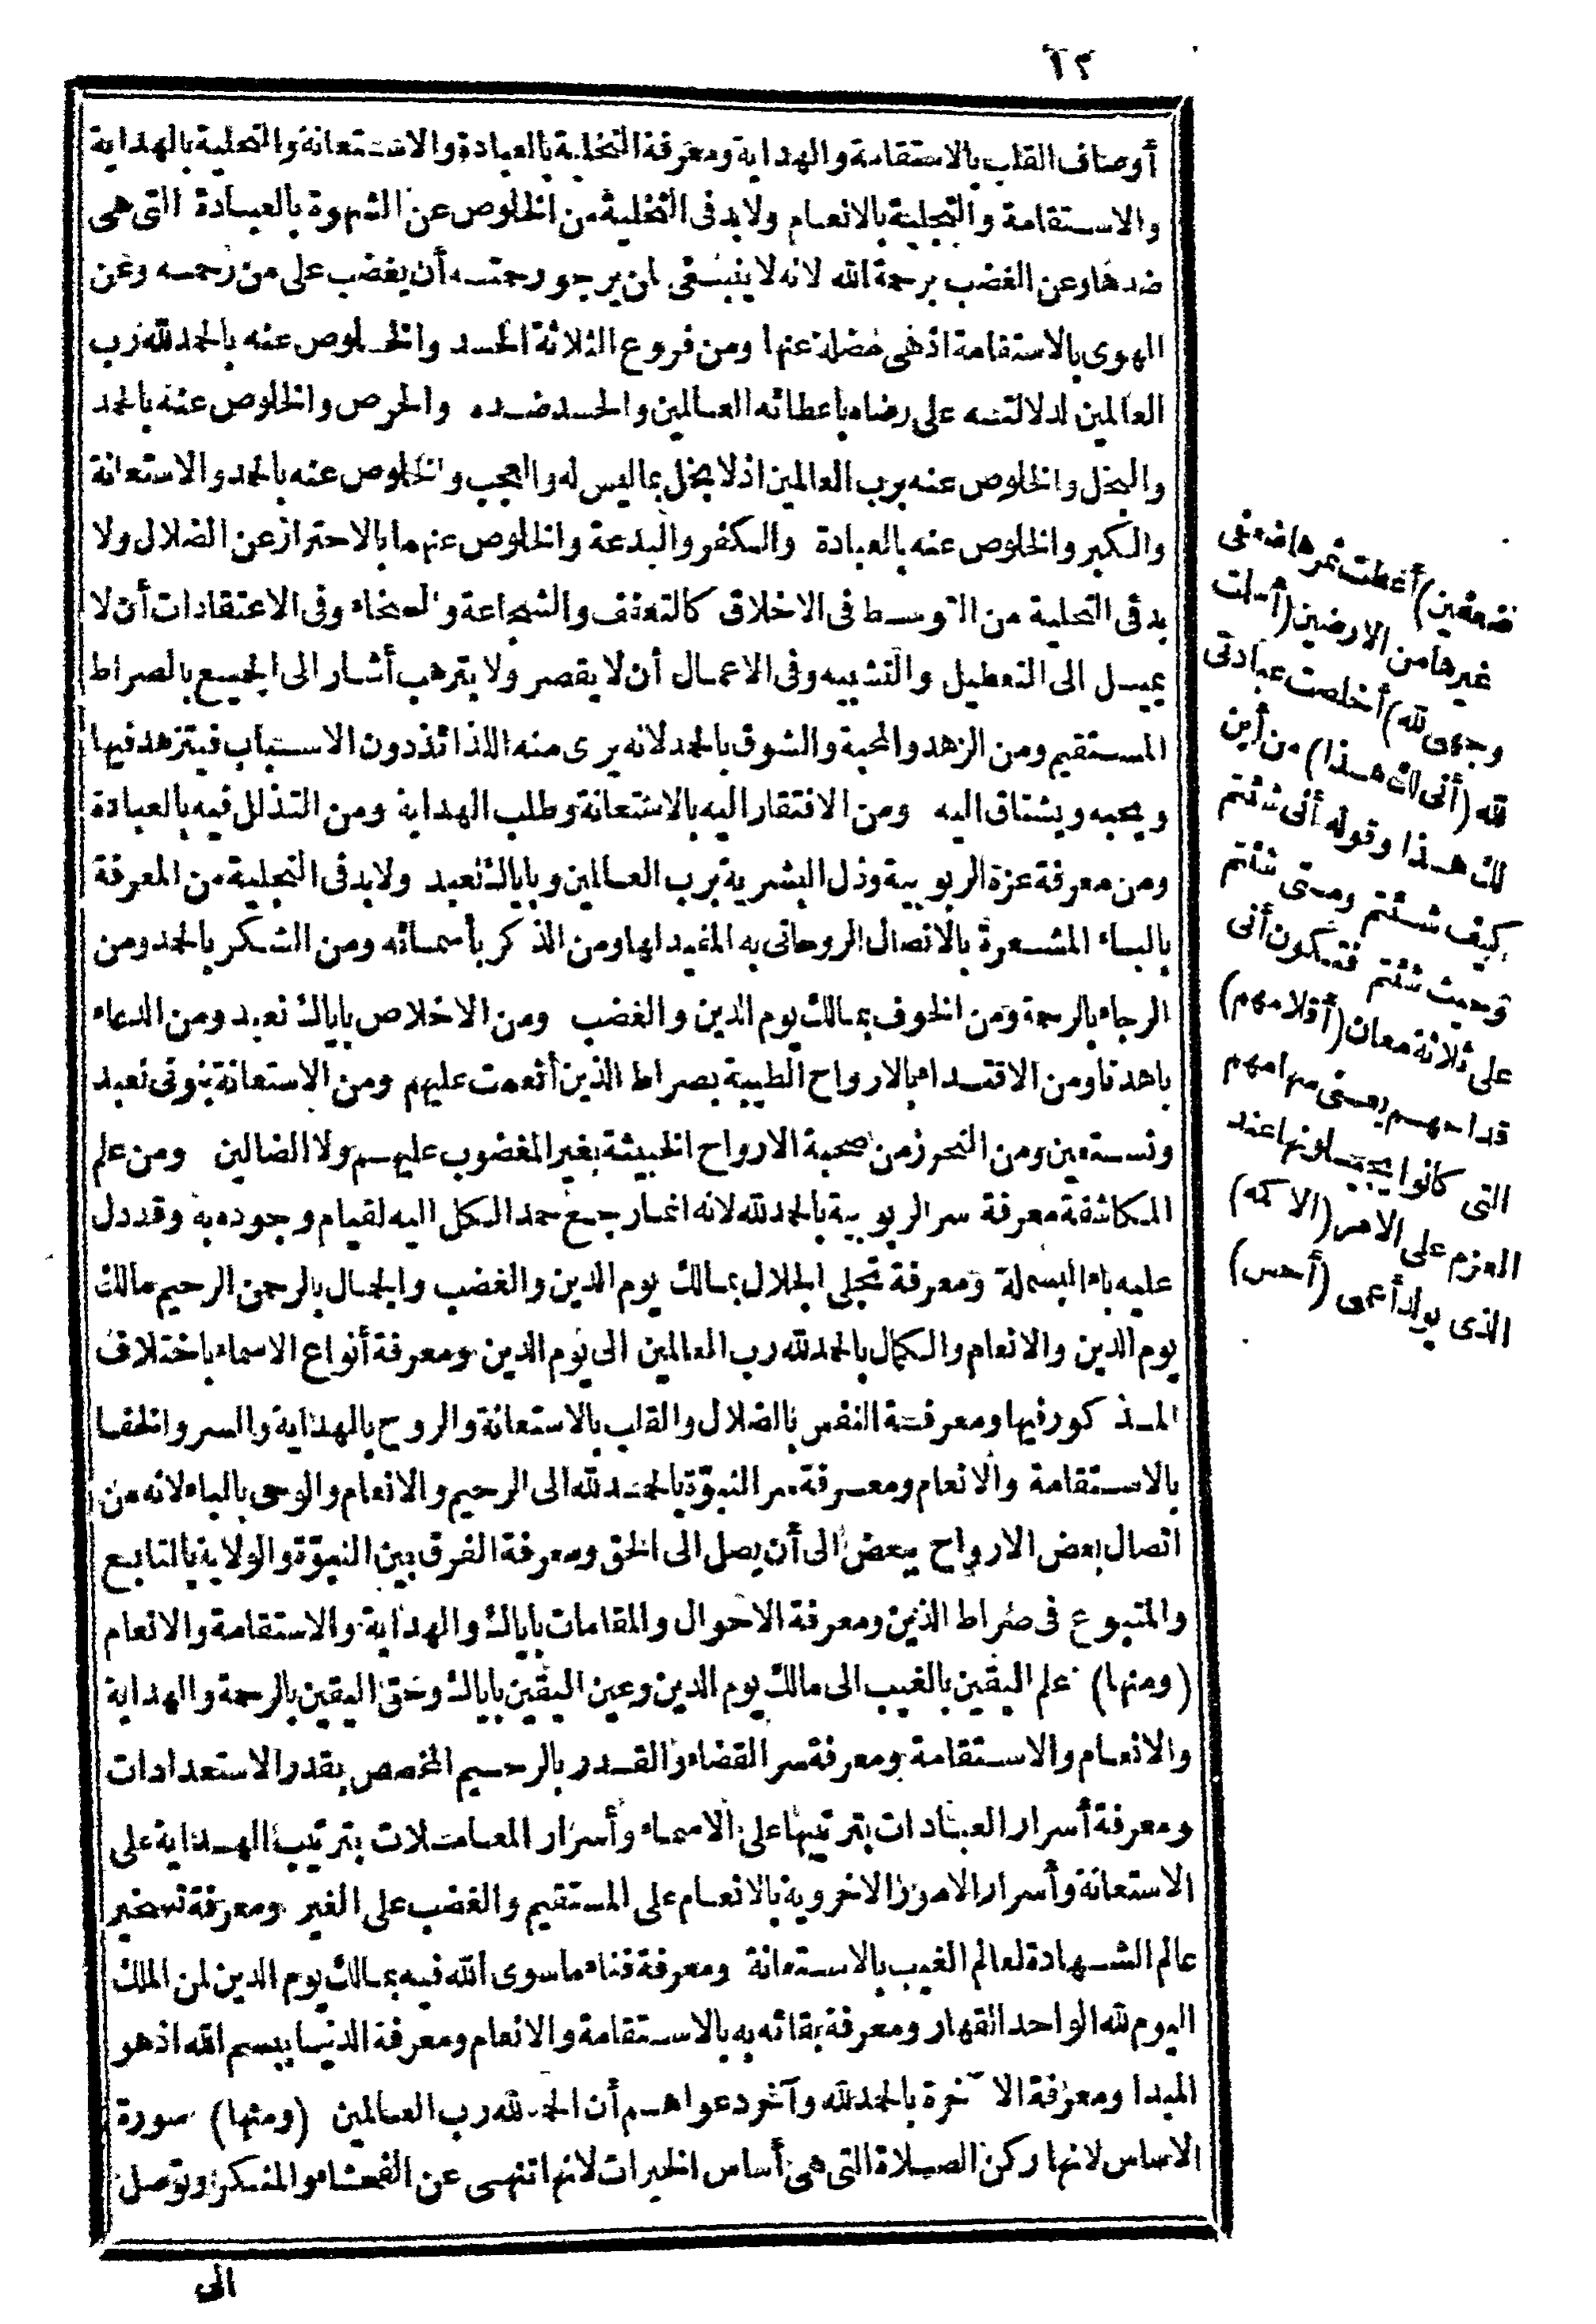 ١٢
أوصاف القلب بالاستقامة والهداية ومعرفة التخلية بالعبادة والاستعانة والتحلية بالهداية
والاستقامة والتجلية بالانعام ولابد فى التخلية من الخلوص عن الشهوة بالعبادة التى هى
ضدها وعن الغضب برحمة الله لانه لا ينبغى لمن يرجو رحمته أن يغضب على من رحمه وعن
الهوى بالاستقامة اذ هى مضلة عنها ومن فروع الثلاثة الحسد والخلوص عنه بالحمد لله رب
العالمين لدلالته على رضاه باعطائه العالمين والحسد ضده والحرص والخلوص عنه بالحمد
والبخل والخلوص عنه برب العالمين اذ لا بخل بما ليس له والعجب والخلوص عنه بالحمد والاستعانة
والكبر والخلوص عنه بالعبادة والكفر والبدعة والخلوص عنهما بالاحتراز عن الضلال ولا
بد فى التحلية من التوسط فى الاخلاق كالتعفف والشجاعة والسخاء وفى الاعتقادات أن لا
يميل الى التعطيل والتشبيه وفى الاعمال أن لا يقصر ولا يترهب أشار الى الجميع بالصراط
المستقيم ومن الزهد والمحبة والشوق بالحمد لانه يرى منه اللذائذ دون الاسباب فيتزهد فيها
ويحبه ويشتاق اليه ومن الافتقار اليه بالاستعانة وطلب الهداية ومن التذلل فيه بالعبادة
ومن معرفة عزة الربوبية وذل البشرية برب العالمين وباياك نعبد ولابد فى التجلية من المعرفة
بالباء المشعرة بالاتصال الروحانى به المفيد لها ومن الذكر بأسمائه ومن الشكر بالحمد ومن
الرجاء بالرحمة ومن الخوف بمالك يوم الدين والغضب ومن الاخلاص باياك نعبد ومن الدعاء
باهدنا ومن الاقتداء بالارواح الطيبة بصراط الذين أنعمت عليهم ومن الاستعانة بنونى نعبد
ونستعين ومن التحرز من صحبة الارواح الخبيثة بغير المغضوب عليهم ولا الضالين ومن علم
المكاشفة معرفة سر الربوبية بالحمد لله لانه انما رجع حمد الكل اليه لقيام وجوده به وقد دل
عليه باء البسملة ومعرفة تجلى الجلال بمالك يوم الدين والغضب والجمال بالرحمن الرحيم مالك
يوم الدين والانعام والكمال بالحمد لله رب العالمين الى يوم الدين ومعرفة أنواع الاسماء باختلاف
المذكور فيها ومعرفة النفس بالضلال والقلب بالاستعانة والروح بالهداية والسر والخفا
بالاستقامة والانعام ومعرفة سر النبوّة بالحمد لله الى الرحيم والانعام والوحى بالباء لانه من
اتصال بعض الارواح ببعض الى أن يصل الى الحق ومعرفة الفرق بين النبوّة والولاية بالتابع
والمتبوع فى صراط الذين ومعرفة الاحوال والمقامات باياك والهداية والاستقامة والانعام
(ومنها) علم اليقين بالغيب الى مالك يوم الدين وعين اليقين باياك وحق اليقين بالرحمة والهداية
والانعام والاستقامة ومعرفة سر القضاء والقدر بالرحيم المخصص بقدر الاستعدادات
ومعرفة أسرار العبادات بترتيبها على الاسماء وأسرار المعاملات بترتيب الهداية على
الاستعانة وأسرار الامور الاخروية بالانعام على المستقيم والغضب على الغير ومعرفة تسخير
عالم الشهادة لعالم الغيب بالاستعانة ومعرفة فناء ما سوى الله فيه بمالك يوم الدين لمن الملك
اليوم لله الواحد القهار ومعرفة بقائه به بالاستقامة والانعام ومعرفة الدنيا ببسم الله اذ هو
المبدا ومعرفة الآخرة بالحمد لله وآخر دعواهم أن الحمد لله رب العالمين (ومنها) سورة
الاساس لانها ركن الصلاة التى هى أساس الخيرات لانها تنهى عن الفحشاء والمنكر وتوصل
الى
ضعفين) أعطت ثمرها ضعفى
غيرها من الارضين (أسلت
وجهى لله) أخلصت عبادتى
لله (أنى لك هذا) من أين
لك هذا وقوله أنى شئتم
كيف شئتم ومتى شئتم
وحيث شئتم فتكون أنى
على ثلاثة معان (أقلامهم)
قداحهم يعنى سهامهم
التى كانوا يجيلونها عند
العزم على الامر (الاكمه)
الذى يولد أعمى (أحس)